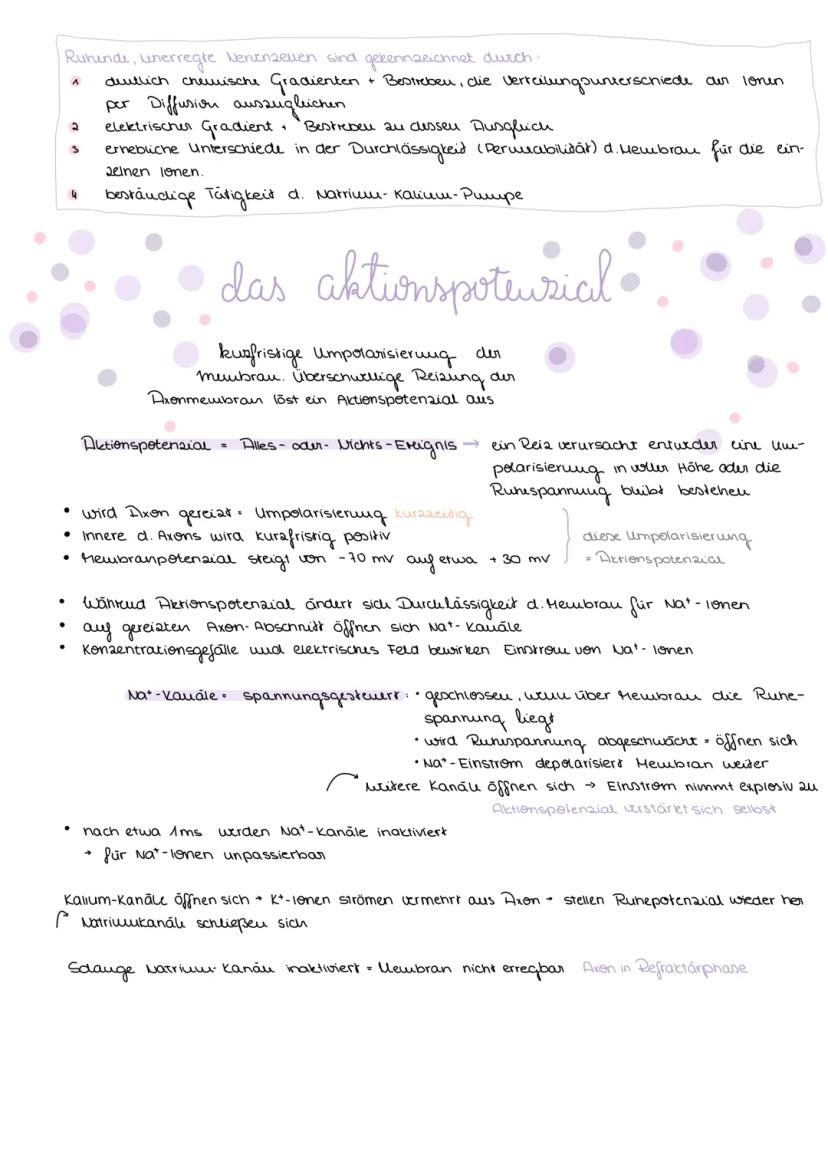 Ruhende, unerregte Nervenzellen sind gekennzeichnet durch:
1 deutlich chemische Gradienten + Bestreben, die Verteilungsunterschiede der Ionen
per Diffusion auszugleichen
2 elektrischer Gradient + Bestreben zu dessen Ausgleich
3 erhebliche Unterschiede in der Durchlässigkeit (Permeabilität) d. Membran für die ein-
zelnen Ionen.
4 beständige Tätigkeit d. Natrium-Kalium-Pumpe
das aktionspotenzial
kurzfristige Umpolarisierung der
Membran. Überschwellige Reizung der
Axonmembran löst ein Aktionspotenzial aus
Aktionspotenzial = Alles-oder-Nichts-Ereignis → ein Reiz verursacht entweder eine Um-
polarisierung in voller Höhe oder die
Ruhespannung bleibt bestehen
• wird Axon gereizt = Umpolarisierung kurzzeitig
• Innere d. Axons wird kurzfristig positiv
• Membranpotenzial steigt von -70 mV auf etwa +30 mV
diese Umpolarisierung
= Aktionspotenzial
• Während Aktionspotenzial ändert sich Durchlässigkeit d. Membran für Na⁺-Ionen
• auf gereizten Axon-Abschnitt öffnen sich Na⁺-Kanäle
• Konzentrationsgefälle und elektrisches Feld bewirken Einstrom von Na⁺-Ionen
Na⁺-Kanäle = spannungsgesteuert: • geschlossen, wenn über Membran die Ruhe-
spannung liegt
• wird Ruhespannung abgeschwächt = öffnen sich
• Na⁺-Einstrom depolarisiert Membran weiter
weitere Kanäle öffnen sich → Einstrom nimmt explosiv zu
Aktionspotenzial verstärkt sich selbst
• nach etwa 1ms werden Na⁺-Kanäle inaktiviert
→ für Na⁺-Ionen unpassierbar
Kalium-Kanäle öffnen sich → K⁺-Ionen strömen vermehrt aus Axon → stellen Ruhepotenzial wieder her
Natriumkanäle schließen sich
Solange Natrium-Kanäle inaktiviert = Membran nicht erregbar Axon in Refraktärphase